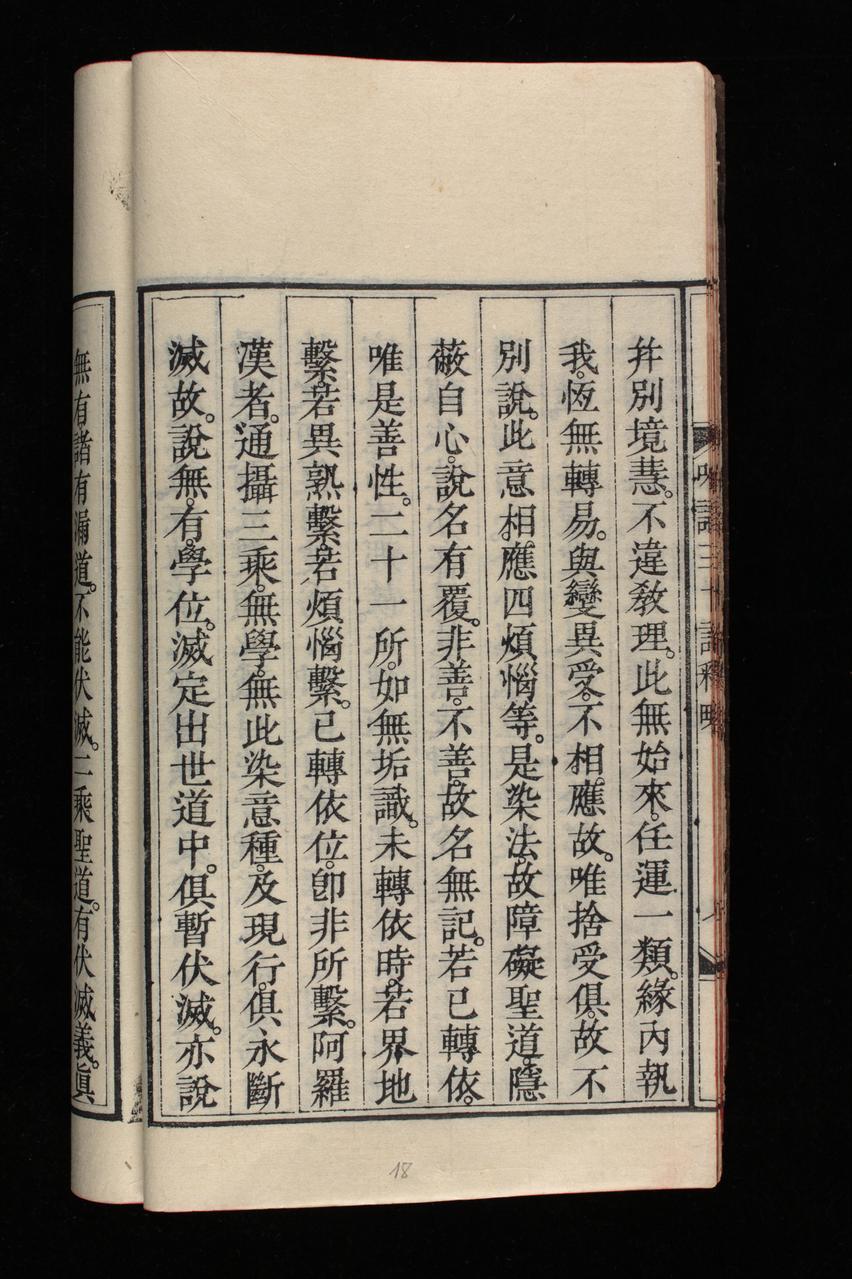 幷別境慧。不違敎理。此無始來。任運一類。緣內執
我。恆無轉易。與變異受。不相。應故。唯捨受俱。故不
別說。此意相。應四煩惱等。是染法。故障礙聖道。隱
蔽自心。說名有覆。非善。不善。故名無記。若已轉依。
唯是善性。二十一所。如無垢識。未轉依時。若界地
繫。若異熟繫。若煩惱繫。已轉依位。卽非所繫。阿羅
漢者。通攝三乘。無學。無此染意種。及現行。俱永斷
滅故。說無。有。學位。滅定出世道中。俱暫伏滅。亦說
無有諸有漏道。不能伏滅。二乘聖道。有伏滅義。眞